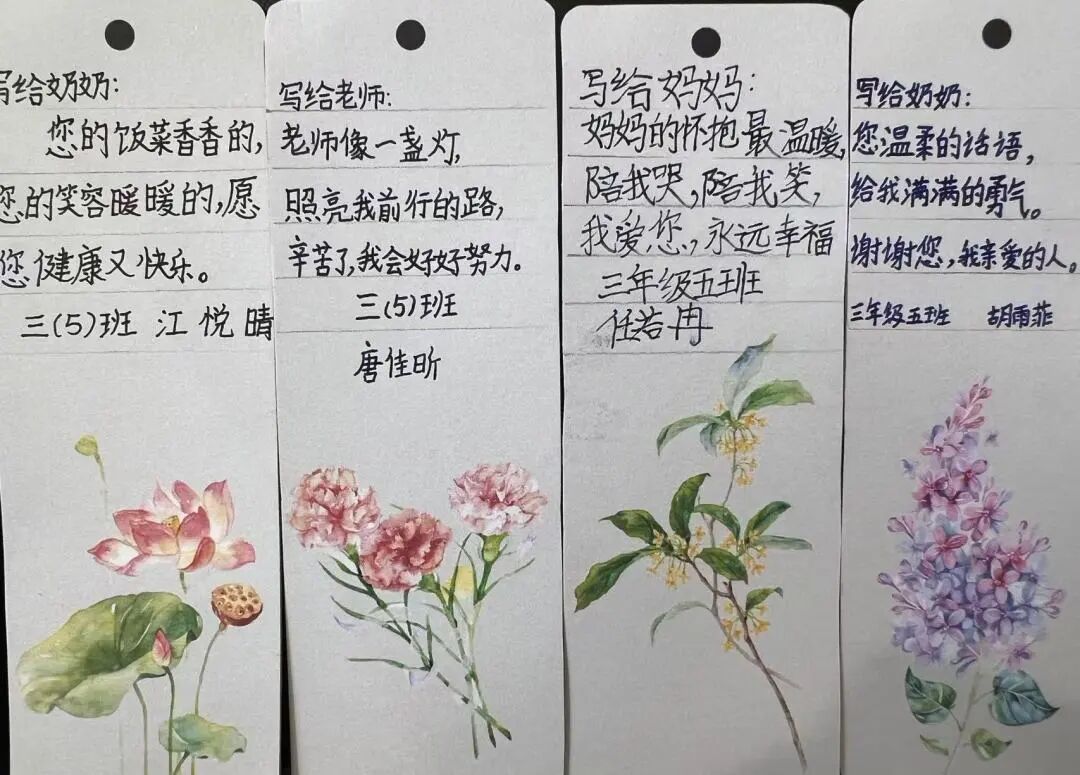 写给奶奶:
您的饭菜香香的,
您的笑容暖暖的,愿
您健康又快乐。
三(5)班 江悦晴
写给老师:
老师像一盏灯,
照亮我前行的路,
辛苦了,我会好好努力。
三(5)班
唐佳昕
写给妈妈:
妈妈的怀抱最温暖,
陪我哭,陪我笑,
我爱您,永远幸福
三年级五班
任若冉
写给奶奶:
您温柔的话语,
给我满满的勇气。
谢谢您,我亲爱的人。
三年级五班 胡雨菲